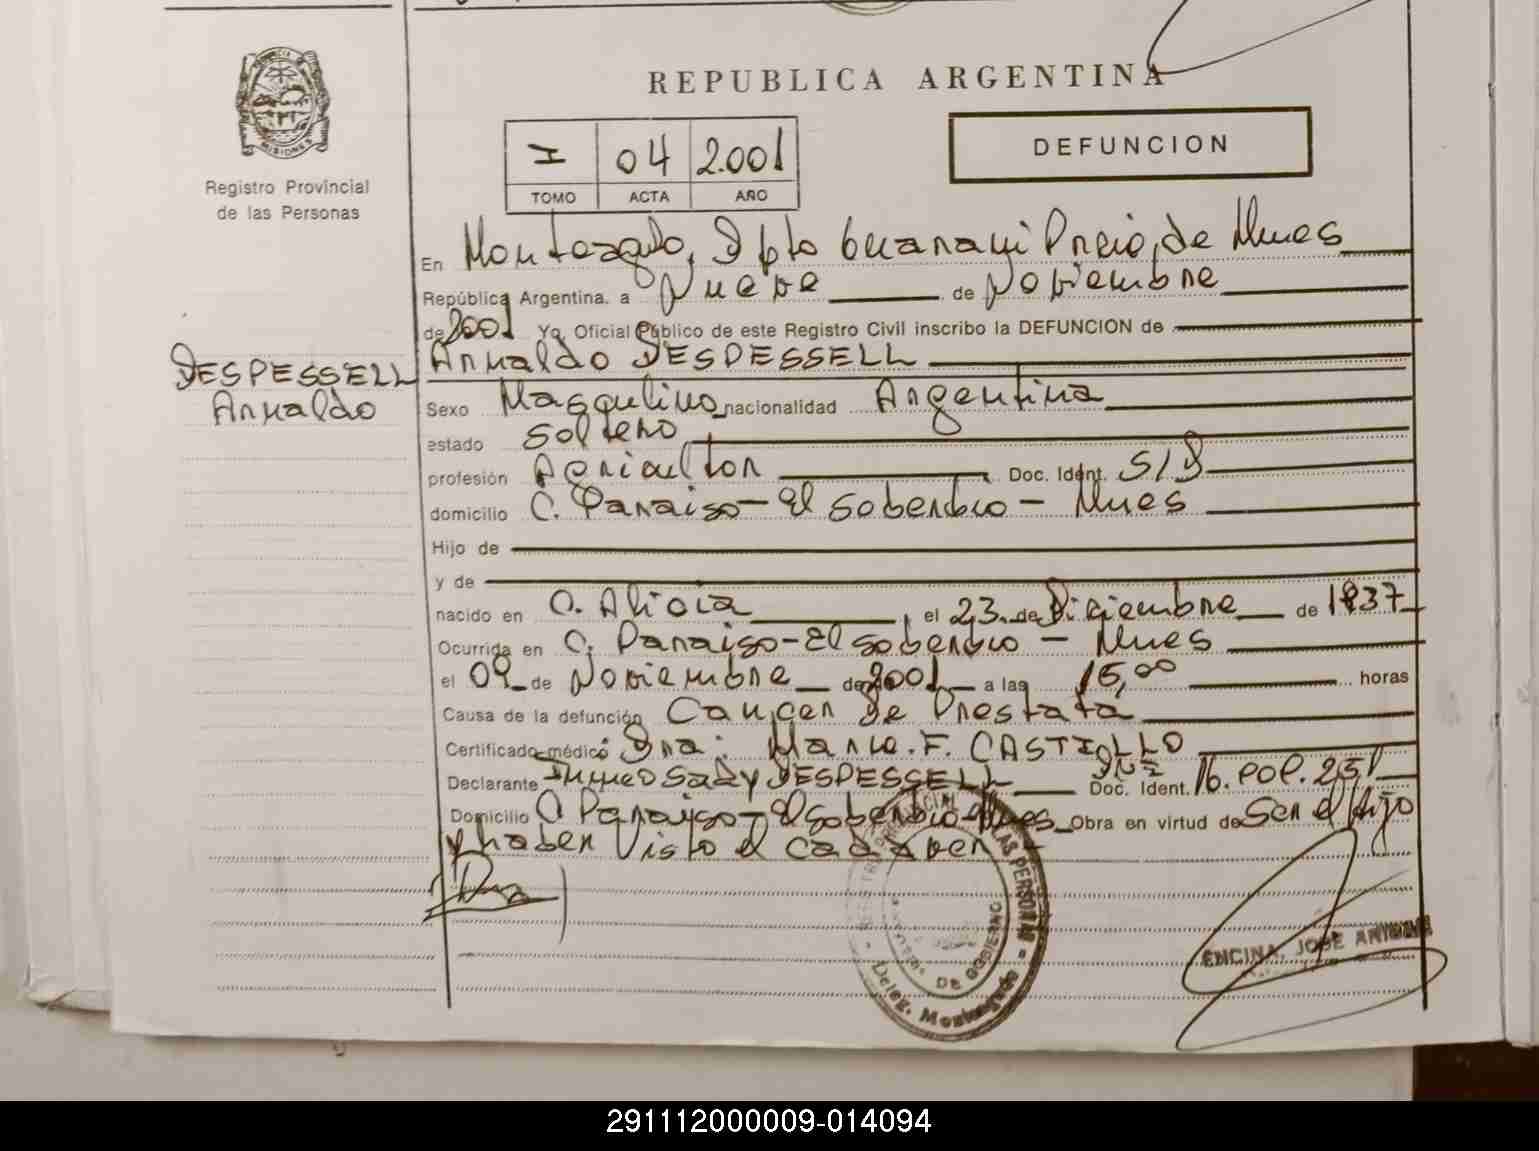 REPUBLICA ARGENTINA
MISIONES
Registro Provincial
de las Personas
I 04 2.001
TOMO ACTA AÑO
DEFUNCION
En Monteagudo, Dpto Guarani Pncia, de Mnes
República Argentina. a Nueve de Noviembre
de 2001 Yo Oficial Público de este Registro Civil inscribo la DEFUNCION de
Arnaldo DESPESSELL
DESPESSELL
Arnaldo
Sexo Masculino nacionalidad Argentina
estado Soltero
profesión Agricultor Doc. Ident. S/D
domicilio C. Paraiso - El Soberbio - Mnes
Hijo de
y de
nacido en C. Alicia, el 23 de Diciembre de 1937
Ocurrida en C. Paraiso - El Soberbio - Mnes
el 09 de Noviembre de 2001 a las 15,00 horas
Causa de la defunción Cancer de Prostata
Certificado médico Dra: Maria. F. CASTILLO
Declarante DESPESSELL DNI Doc. Ident. 16.
Domicilio C Paraiso - El Soberbio - Mnes Obra en virtud de Ser el hijo
y haber visto el cadaver
LAS PERSONAS
DE GOBIERNO
Deleg. Monteagudo
ENCINA, JOSE
291112000009-014094